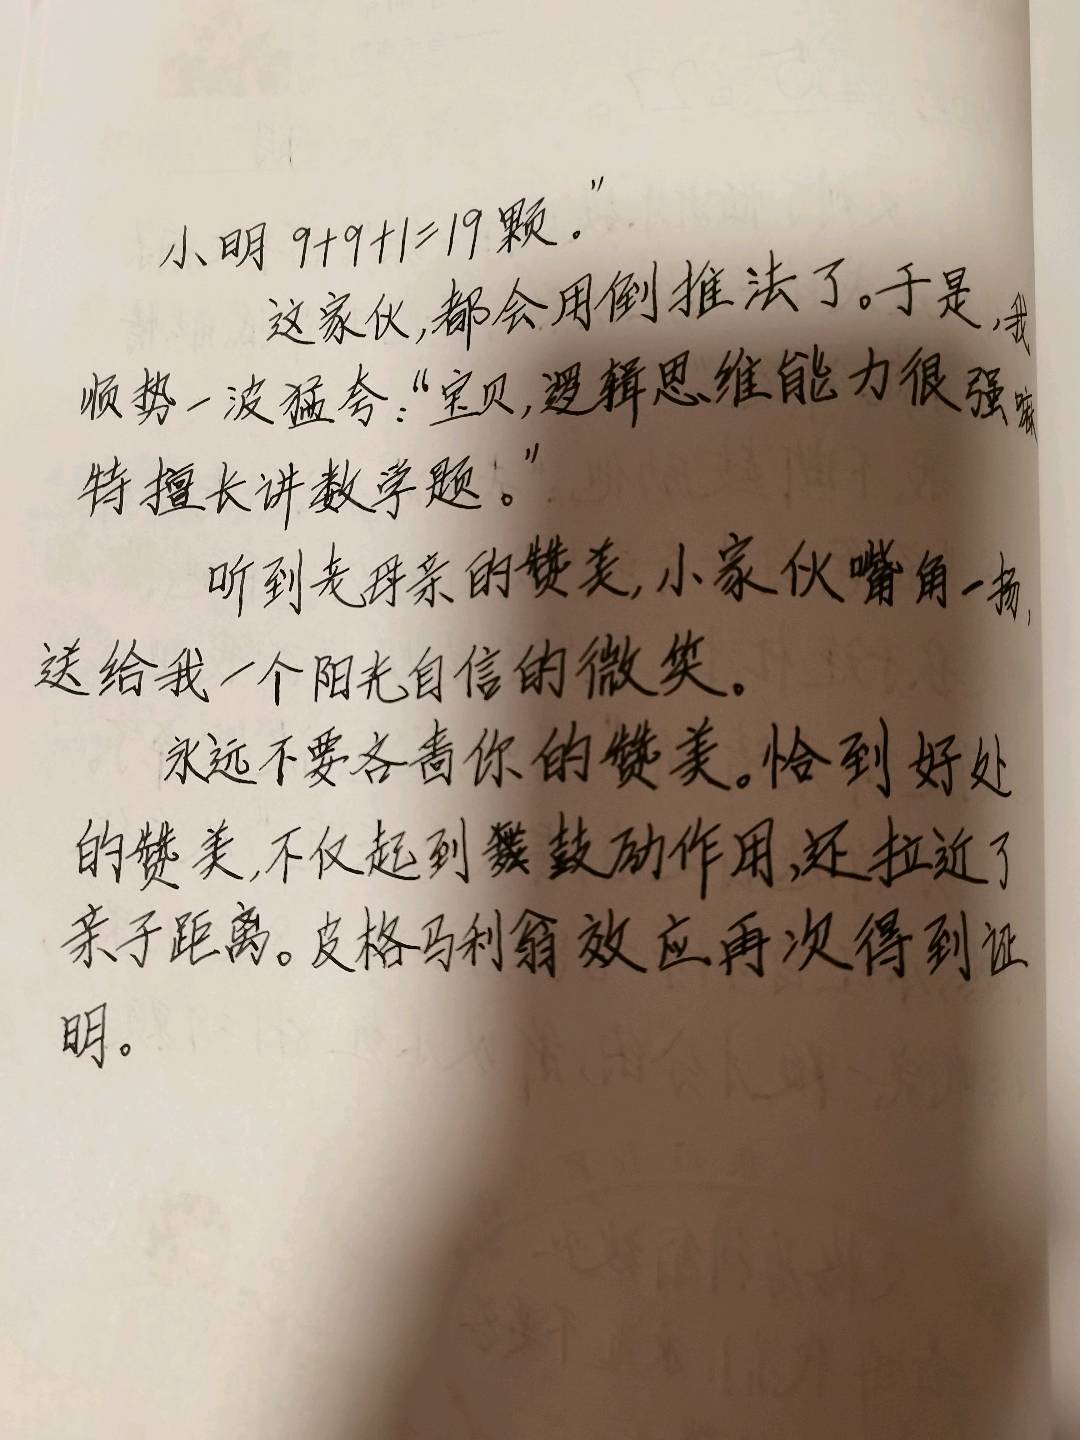 小明 9+9+1=19颗。”
这家伙,都会用倒推法了。于是,我
顺势一波猛夸:“宝贝,逻辑思维能力很强嘛
特擅长讲数学题。”
听到老母亲的赞美,小家伙嘴角一扬,
送给我一个阳光自信的微笑。
永远不要吝啬你的赞美。恰到好处
的赞美,不仅起到鼓励作用,还拉近了
亲子距离。皮格马利翁效应再次得到证
明。